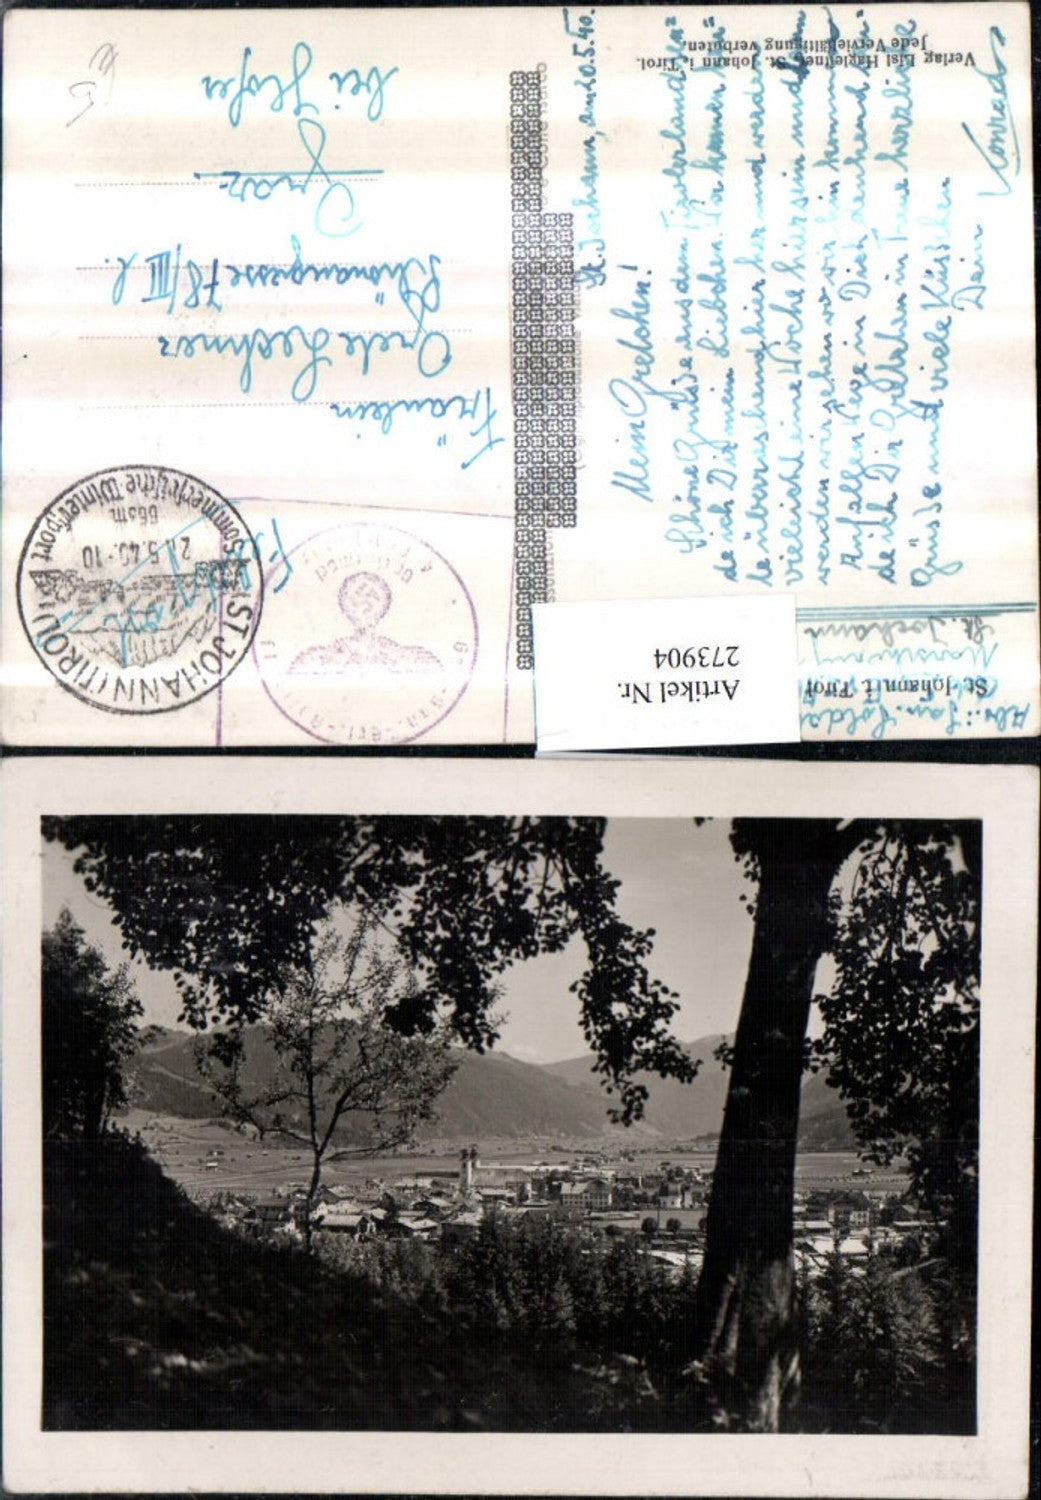 St. Johann, am 20.5.40.
Mein Gretchen!
Schöne Grüße aus dem Tirolerland sen=
de ich Dir mein Liebchen. Wir kamen heu=
te überraschend hier und werden
vielleicht eine Woche hier sein und dann
werden wir sehen wo wir hin kommen.
Auf alle Fälle in Dich denkend sen=
de ich Dir Gretchen in Treue herzliche
Grüsse und viele Küsschen
Dein
Konrad
Fräulein
Grete Lechner
Schönaugasse 78/III l.
Graz.
bei Hofer
ST. JOHANN (TIROL)
Sommerfrische Wintersport
660m
21.5.40.-10
St. Johann i. Tirol
Abs.: San. Soldat
St. Johann
Verlag Lisl Hagleitner, St. Johann i. Tirol.
Jede Vervielfältigung verboten.
Artikel Nr.
273904